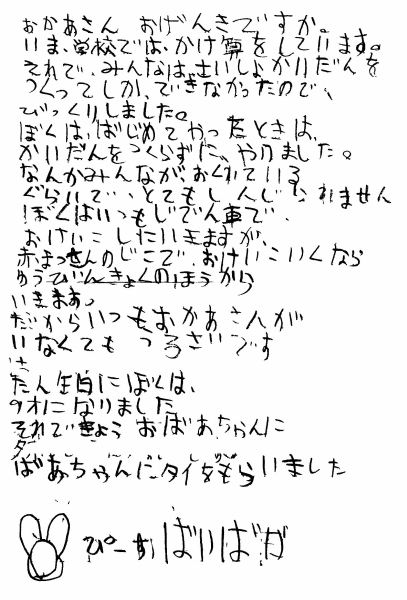 おかあさん おげんきですか。
いま、学校では、かけ算をしています。
それで、みんなは、さいしょかいだんを
つくってしか、できなかったので、
びっくりしました。
ぼくは、はじめてやったときは、
かいだんをつくらずに、やりました。
なんかみんながおくれている
ぐらいで、とてもしんじられません
ぼくはいつもじてん車で、
おけいこしたいきますが、
赤まっさんのじこで、おけいこいくなら
ゆうびんきょくのほうから
いきます。
だからいつもおかあさんが
いなくても つらいです
たん生日にぼくは、
才になりました
それできょう おばあちゃんに
ばあちゃんにタイをもらいました
ぴーす ばいばい